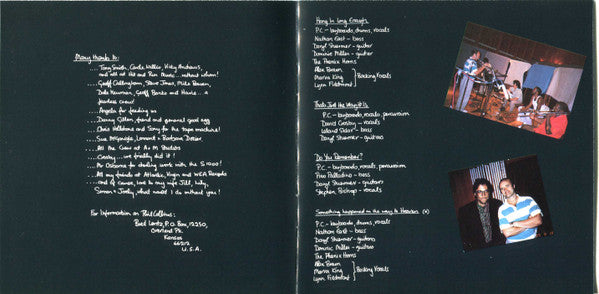 Many thanks to:
....Tony Smith, Carole Willis, Vicky Andrews,
and all at Hit and Run Music... without whom!
....Geoff Callingham, Steve Jones, Mike Bowen,
Dale Newman, Geoff Banks and Howie... a
fearless crew!
....Angela for feeding us
....Danny Gillen, friend and general good egg
....Chris Hollebone and Sony for the tape machine!
....Sue McGonigle, Leonard + Barbara Dexter
....All the Crew at A+M Studios
....Crosby... we finally did it!
....Mr Osborne for sterling work with the S1000!
....All my friends at Atlantic, Virgin and WEA Records
....and of course, love to my wife Jill, Lily,
Simon + Joely, what would I do without you!
For information on Phil Collins:
Brad Lentz, P.O. Box 12250,
Overland Pk.
Kansas
66212
U.S.A.
Hang In Long Enough
P.C – keyboards, drums, vocals
Nathan East – bass
Daryl Stuermer – guitar
Dominic Miller – guitar
The Phenix Horns
Alex Brown
Marva King } Backing Vocals
Lynn Fiddmont
That's Just the Way it Is
P.C – keyboards, vocals, percussion
David Crosby – vocals
Leland Sklar – bass
Daryl Stuermer – guitars
Do You Remember?
P.C – keyboards, vocals, percussion
Pino Palladino – bass
Daryl Stuermer – guitars
Stephen Bishop – vocals
Something happened on the way to Heaven (*)
P.C – keyboards, drums, vocals
Nathan East – bass
Daryl Stuermer – guitars
Dominic Miller – guitars
The Phenix Horns
Alex Brown
Marva King } Backing Vocals
Lynn Fiddmont